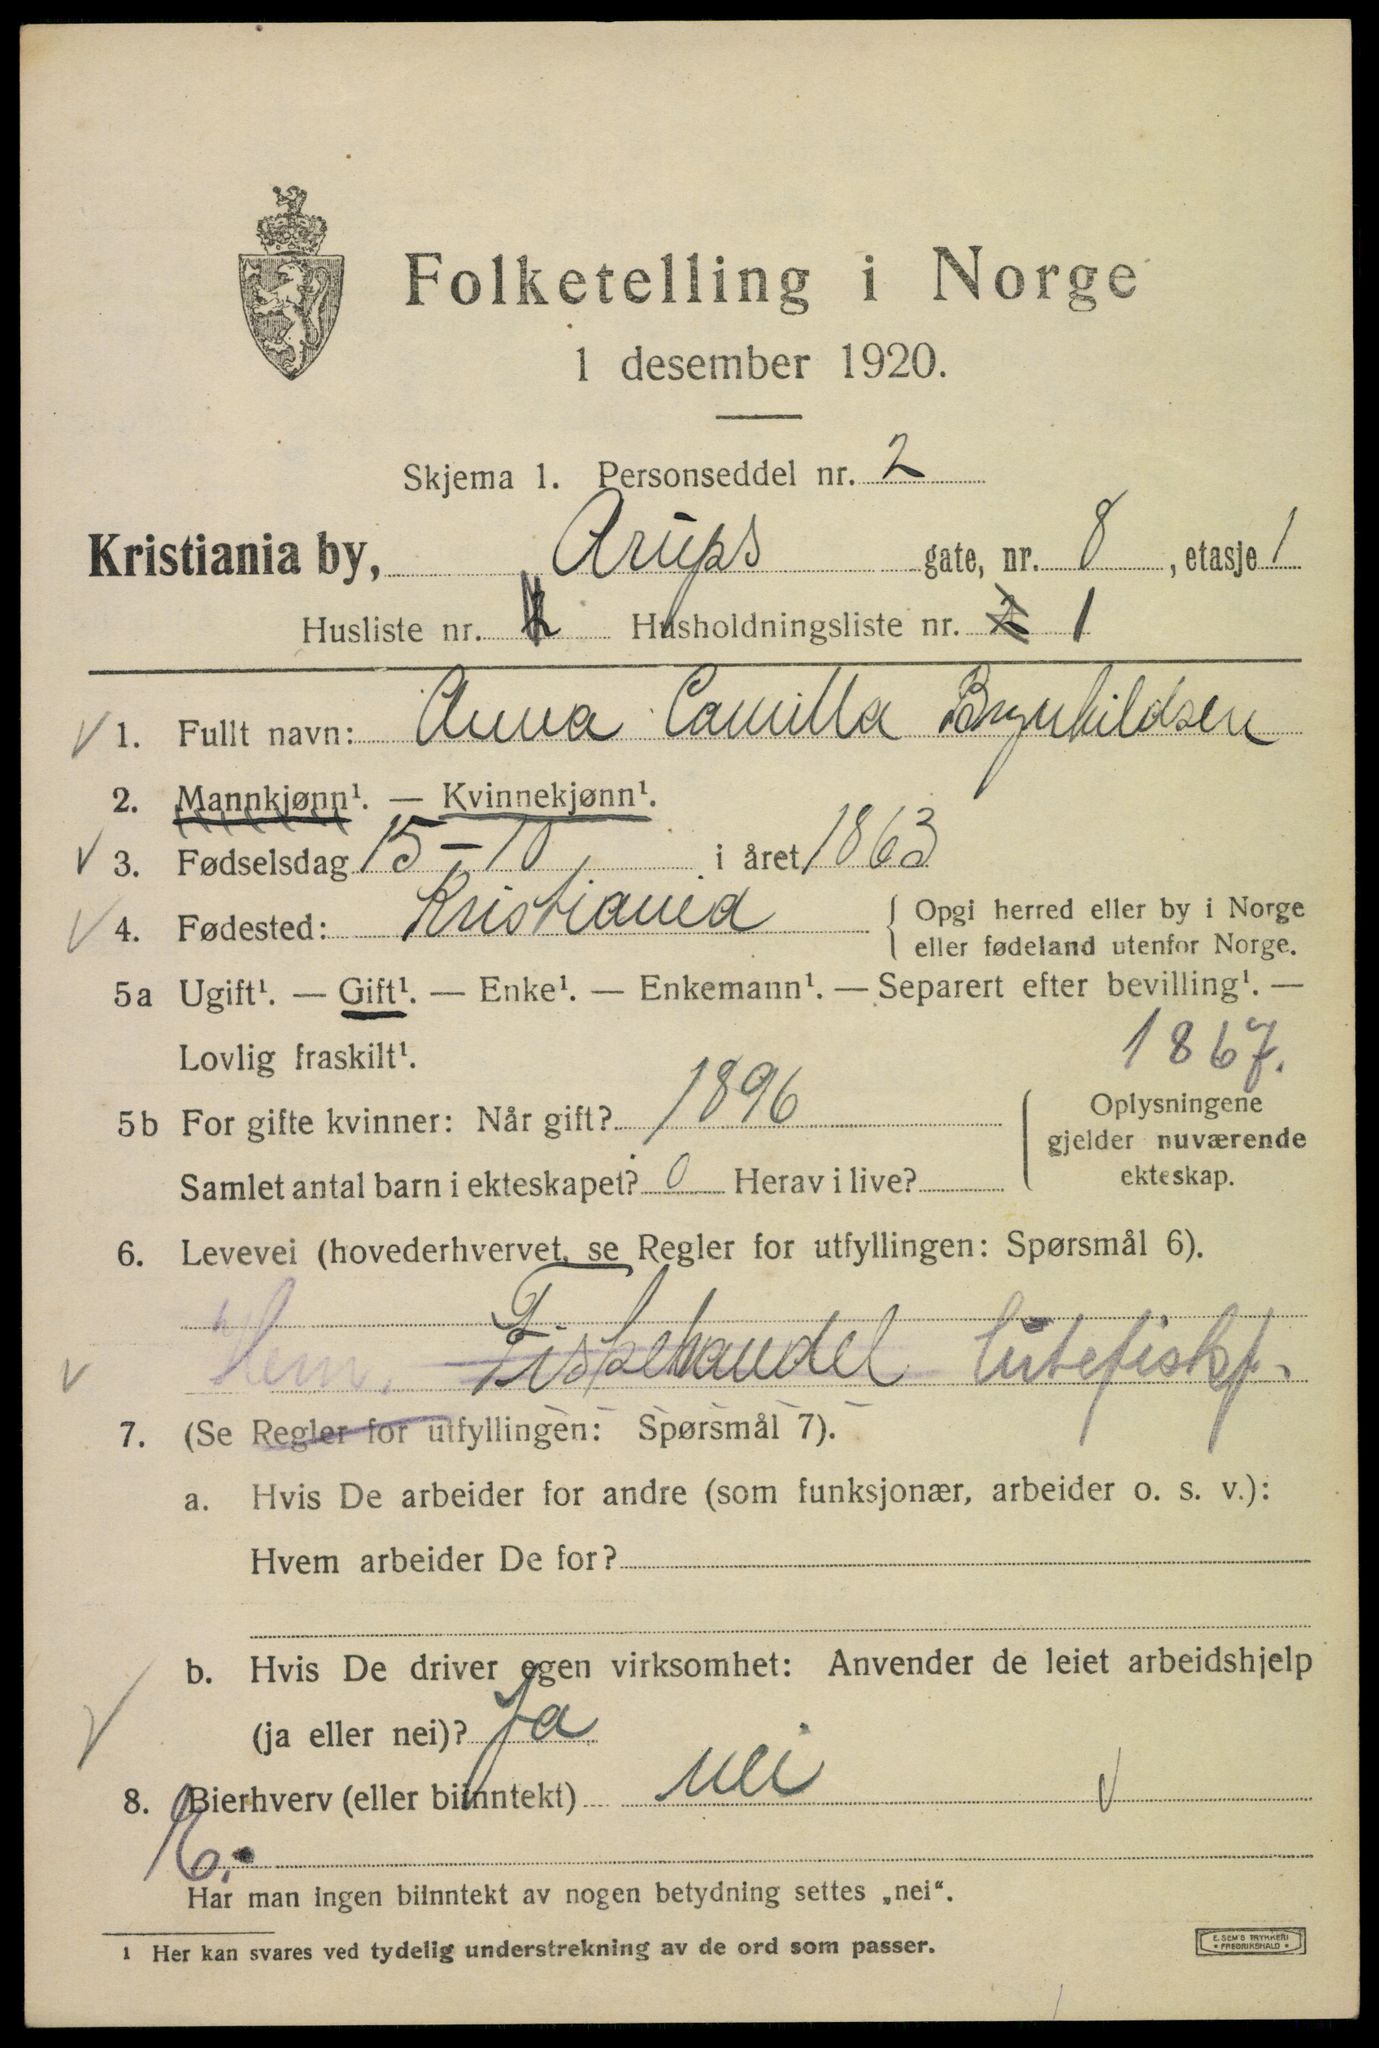 Folketelling i Norge
1 desember 1920.
Skjema 1. Personseddel nr. 2
Kristiania by, Arups gate, nr. 8, etasje 1
Husliste nr. Husholdningsliste nr. 2 1
1. Fullt navn: Anna Camilla Brynhildsen
2. Mannkjønn¹. — Kvinnekjønn¹.
3. Fødselsdag 15-10 i året 1863
4. Fødested: Kristiania { Opgi herred eller by i Norge
eller fødeland utenfor Norge.
5a Ugift¹. — Gift¹. — Enke¹. — Enkemann¹. — Separert efter bevilling¹. —
Lovlig fraskilt¹. 1867.
5b For gifte kvinner: Når gift? 1896
Samlet antal barn i ekteskapet? 0 Herav i live?
Oplysningene
gjelder nuværende
ekteskap.
6. Levevei (hovederhvervet, se Regler for utfyllingen: Spørsmål 6).
Hem. Fiskehandel Lutefiskf.
7. (Se Regler for utfyllingen: Spørsmål 7).
a. Hvis De arbeider for andre (som funksjonær, arbeider o. s. v.):
Hvem arbeider De for?
b. Hvis De driver egen virksomhet: Anvender de leiet arbeidshjelp
(ja eller nei)? Ja
8. Bierhverv (eller biinntekt) nei
Har man ingen biinntekt av nogen betydning settes „nei“.
1 Her kan svares ved tydelig understrekning av de ord som passer.
E. SEM'S TRYKKERI
FREDRIKSHALD